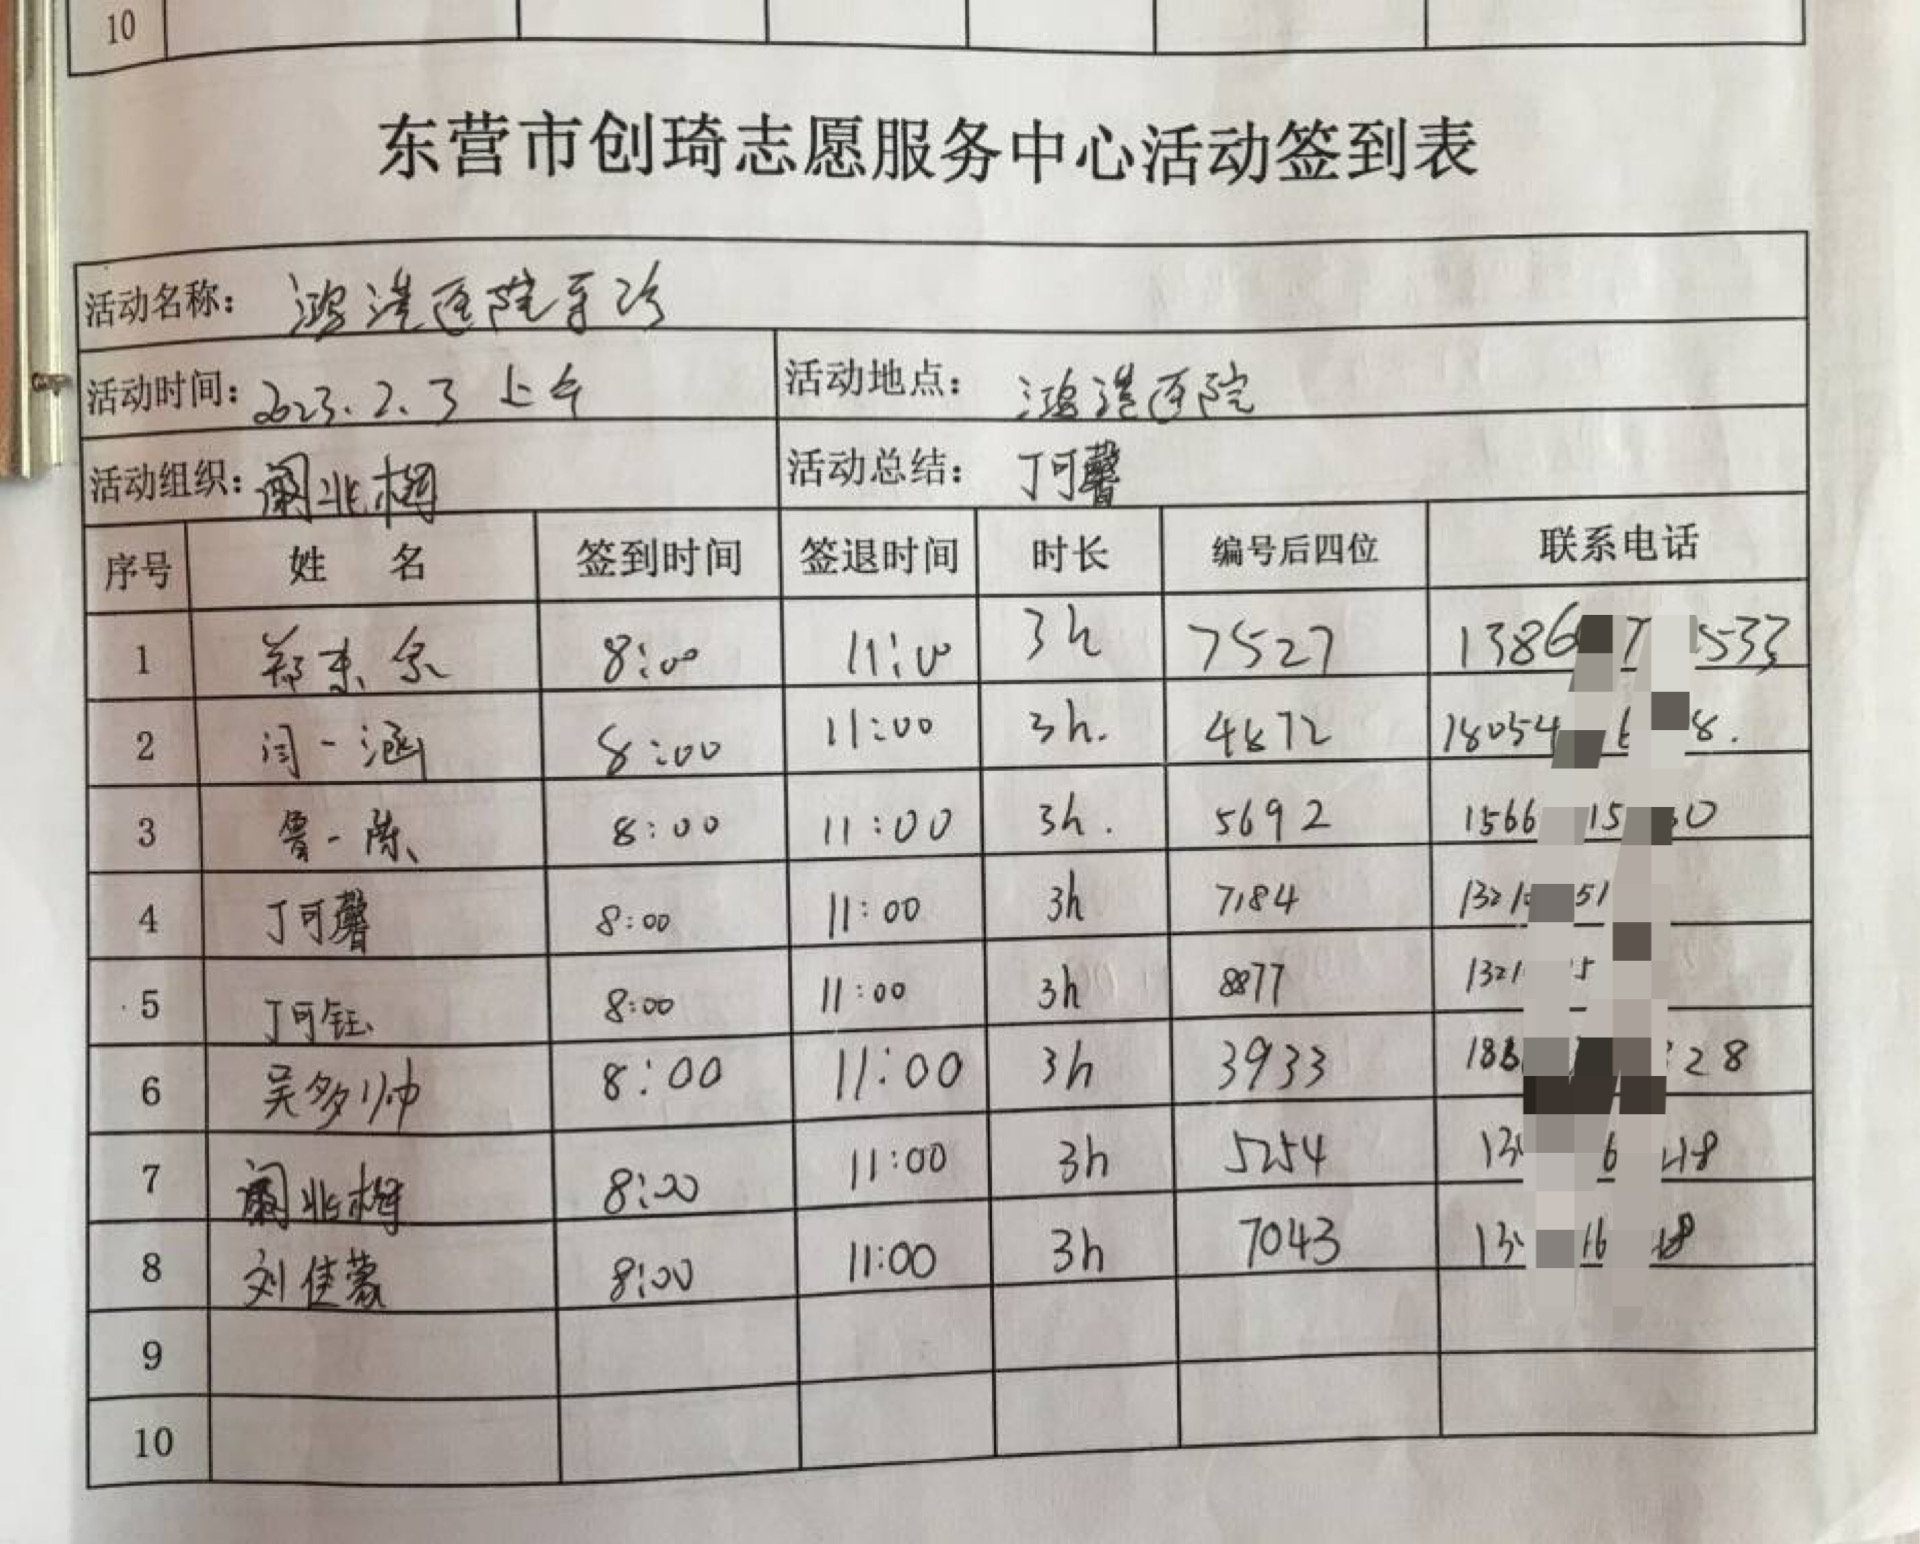 10
东营市创琦志愿服务中心活动签到表
活动名称： 鸿港医院导诊
活动时间：2023.2.3 上午 活动地点： 鸿港医院
活动组织： 活动总结： 丁可馨
序号 姓 名 签到时间 签退时间 时长 编号后四位 联系电话
1 8:00 11:00 3h 7527 1386 533
2 闫一涵 8:00 11:00 3h. 4872 18054 8.
3 鲁一陈 8:00 11:00 3h. 5692 1566 15 0
4 丁可馨 8:00 11:00 3h 7184 1321 51
5 丁可钰 8:00 11:00 3h 8877 1321 5
6 吴多帅 8:00 11:00 3h 3933 188 28
7 8:00 11:00 3h 5254 13 6 18
8 刘佳蒙 8:00 11:00 3h 7043 13 16 18
9
10